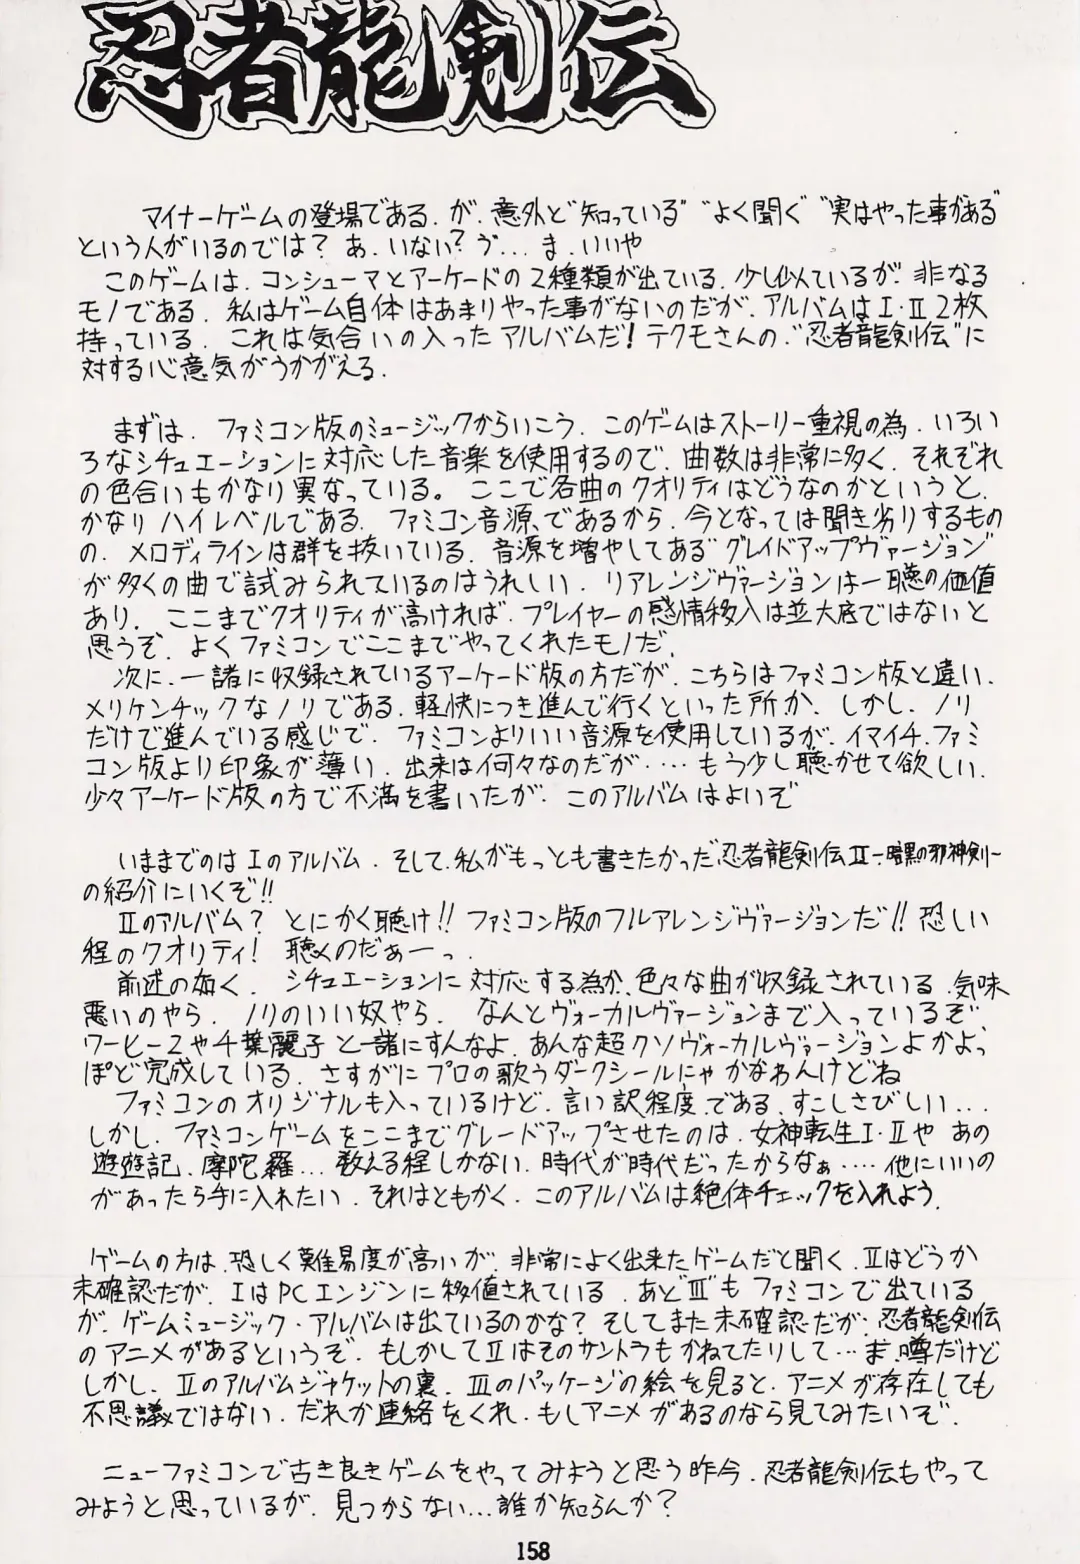 忍者龍剣伝
マイナーゲームの登場である。が、意外と"知っている""よく聞く""実はやった事がある"
という人がいるのでは？ あ、いない？ ゔ… ま、いいや
このゲームは、コンシューマとアーケードの2種類が出ている。少し似ているが、非なる
モノである。私はゲーム自体はあまりやった事がないのだが、アルバムはI・II 2枚
持っている。これは気合いの入ったアルバムだ！テクモさんの、"忍者龍剣伝"に
対する心意気がうかがえる。
まずは、ファミコン版のミュージックからいこう。このゲームはストーリー重視の為、いろい
ろなシチュエーションに対応した音楽を使用するので、曲数は非常に多く、それぞれ
の色合いもかなり異なっている。ここで各曲のクオリティはどうなのかというと、
かなりハイレベルである。ファミコン音源、であるから、今となっては聞き劣りするもの
の、メロディラインは群を抜いている。音源を増やしてある"グレイドアップヴァージョン"
が多くの曲で試みられているのはうれしい。リアレンジヴァージョンは一聴の価値
あり。ここまでクオリティが高ければ、プレイヤーの感情移入は並大底ではないと
思うぞ。よくファミコンでここまでやってくれたモノだ。
次に、一諸に収録されているアーケード版の方だが、こちらはファミコン版と違い、
メリケンチックなノリである。軽快につき進んで行くといった所か。しかし、ノリ
だけで進んでいる感じで、ファミコンよりいい音源を使用しているが、イマイチ、ファミ
コン版より印象が薄い。出来は何々なのだが‥‥もう少し聴かせて欲しい。
少々アーケード版の方で不満を書いたが、このアルバムはよいぞ
いままでのはIのアルバム。そして、私がもっとも書きたかった忍者龍剣伝II－暗黒の邪神剣－
の紹介にいくぞ!!
IIのアルバム？ とにかく聴け!! ファミコン版のフルアレンジヴァージョンだ!! 恐しい
程のクオリティ！ 聴くのだぁーっ。
前述の如く、シチュエーションに対応する為か、色々な曲が収録されている。気味
悪いのやら、ノリのいい奴やら、なんとヴォーカルヴァージョンまで入っているぞ。
ワーヒー2や千葉麗子と一諸にすんなよ。あんな超クソヴォーカルヴァージョンよかよっ
ぽど完成している。さすがにプロの歌うダークシールにゃかなわんけどね
ファミコンのオリジナルも入っているけど、言い訳程度、である。すこしさびしい…
しかし、ファミコンゲームをここまでグレードアップさせたのは、女神転生I・IIや あの
遊遊記、摩陀羅…教える程しかない。時代が時代だったからなぁ‥‥他にいいの
があったら手に入れたい。それはともかく、このアルバムは絶体チェックを入れよう。
ゲームの方は、恐しく難易度が高いが、非常によく出来たゲームだと聞く。IIはどうか
未確認だが、IはPCエンジンに移値されている。あと"III"も ファミコンで出ている
が、ゲームミュージック・アルバムは出ているのかな？ そしてまた未確認だが、忍者龍剣伝
のアニメがあるというぞ。もしかしてIIはそのサントラもかねてたりして…ま、噂だけど
しかし、IIのアルバムジャケットの裏、IIIのパッケージの絵を見ると、アニメが存在しても
不思議ではない。だれか連絡をくれ。もしアニメがあるのなら見てみたいぞ。
ニューファミコンで古き良きゲームをやってみようと思う昨今、忍者龍剣伝もやって
みようと思っているが、見つからない…誰か知らんか？
158